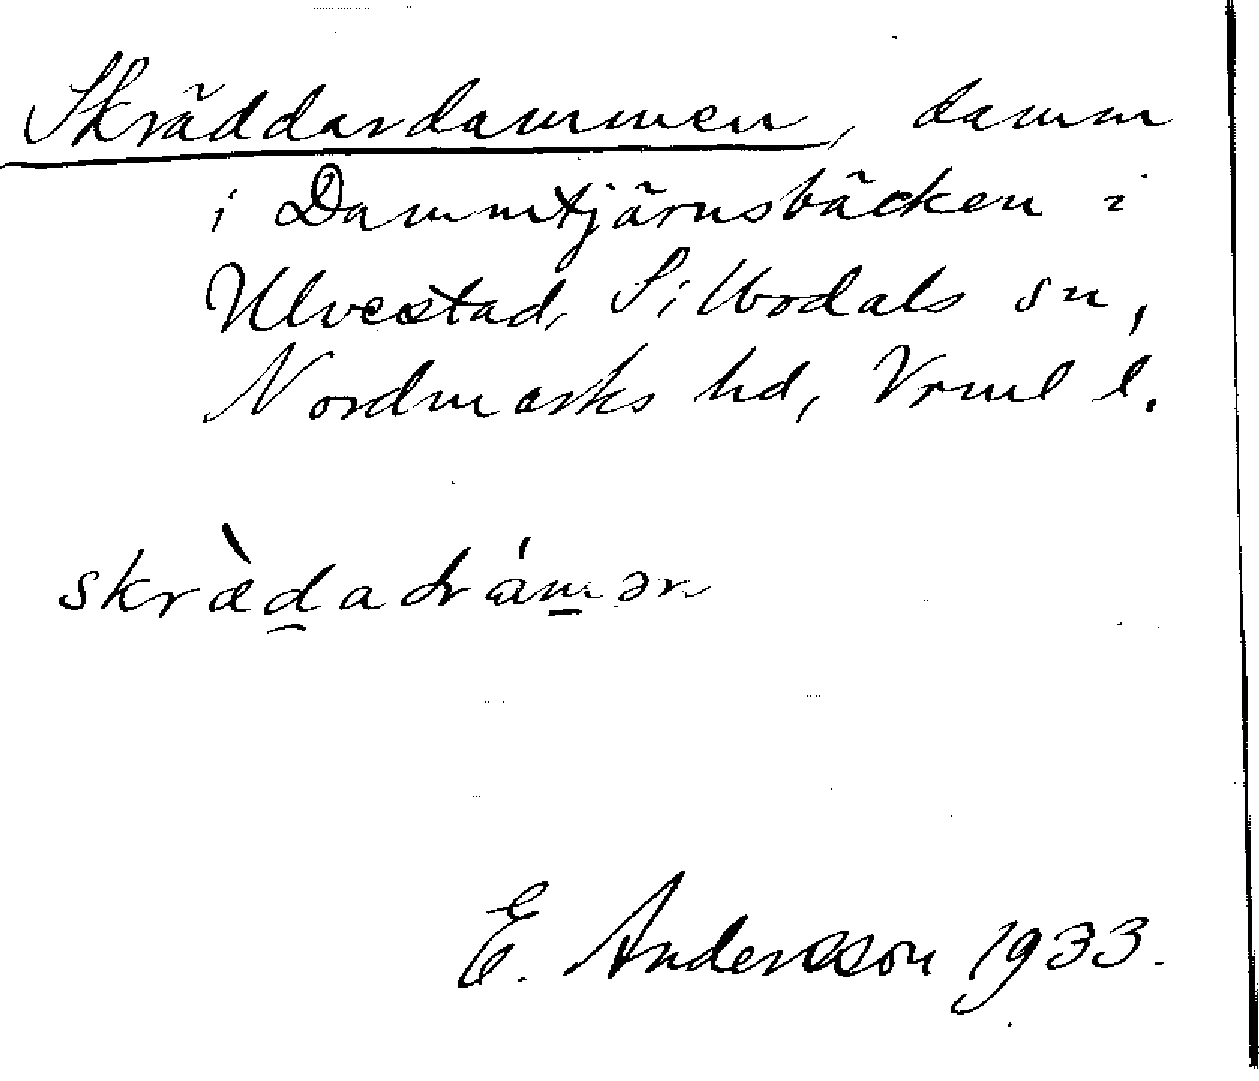 Skräddardammen, damm
i Dammtjärnsbäcken i
Ulvestad, Sillbodals sn,
Nordmarks hd, Vrml l.
E. Andersson 1933.